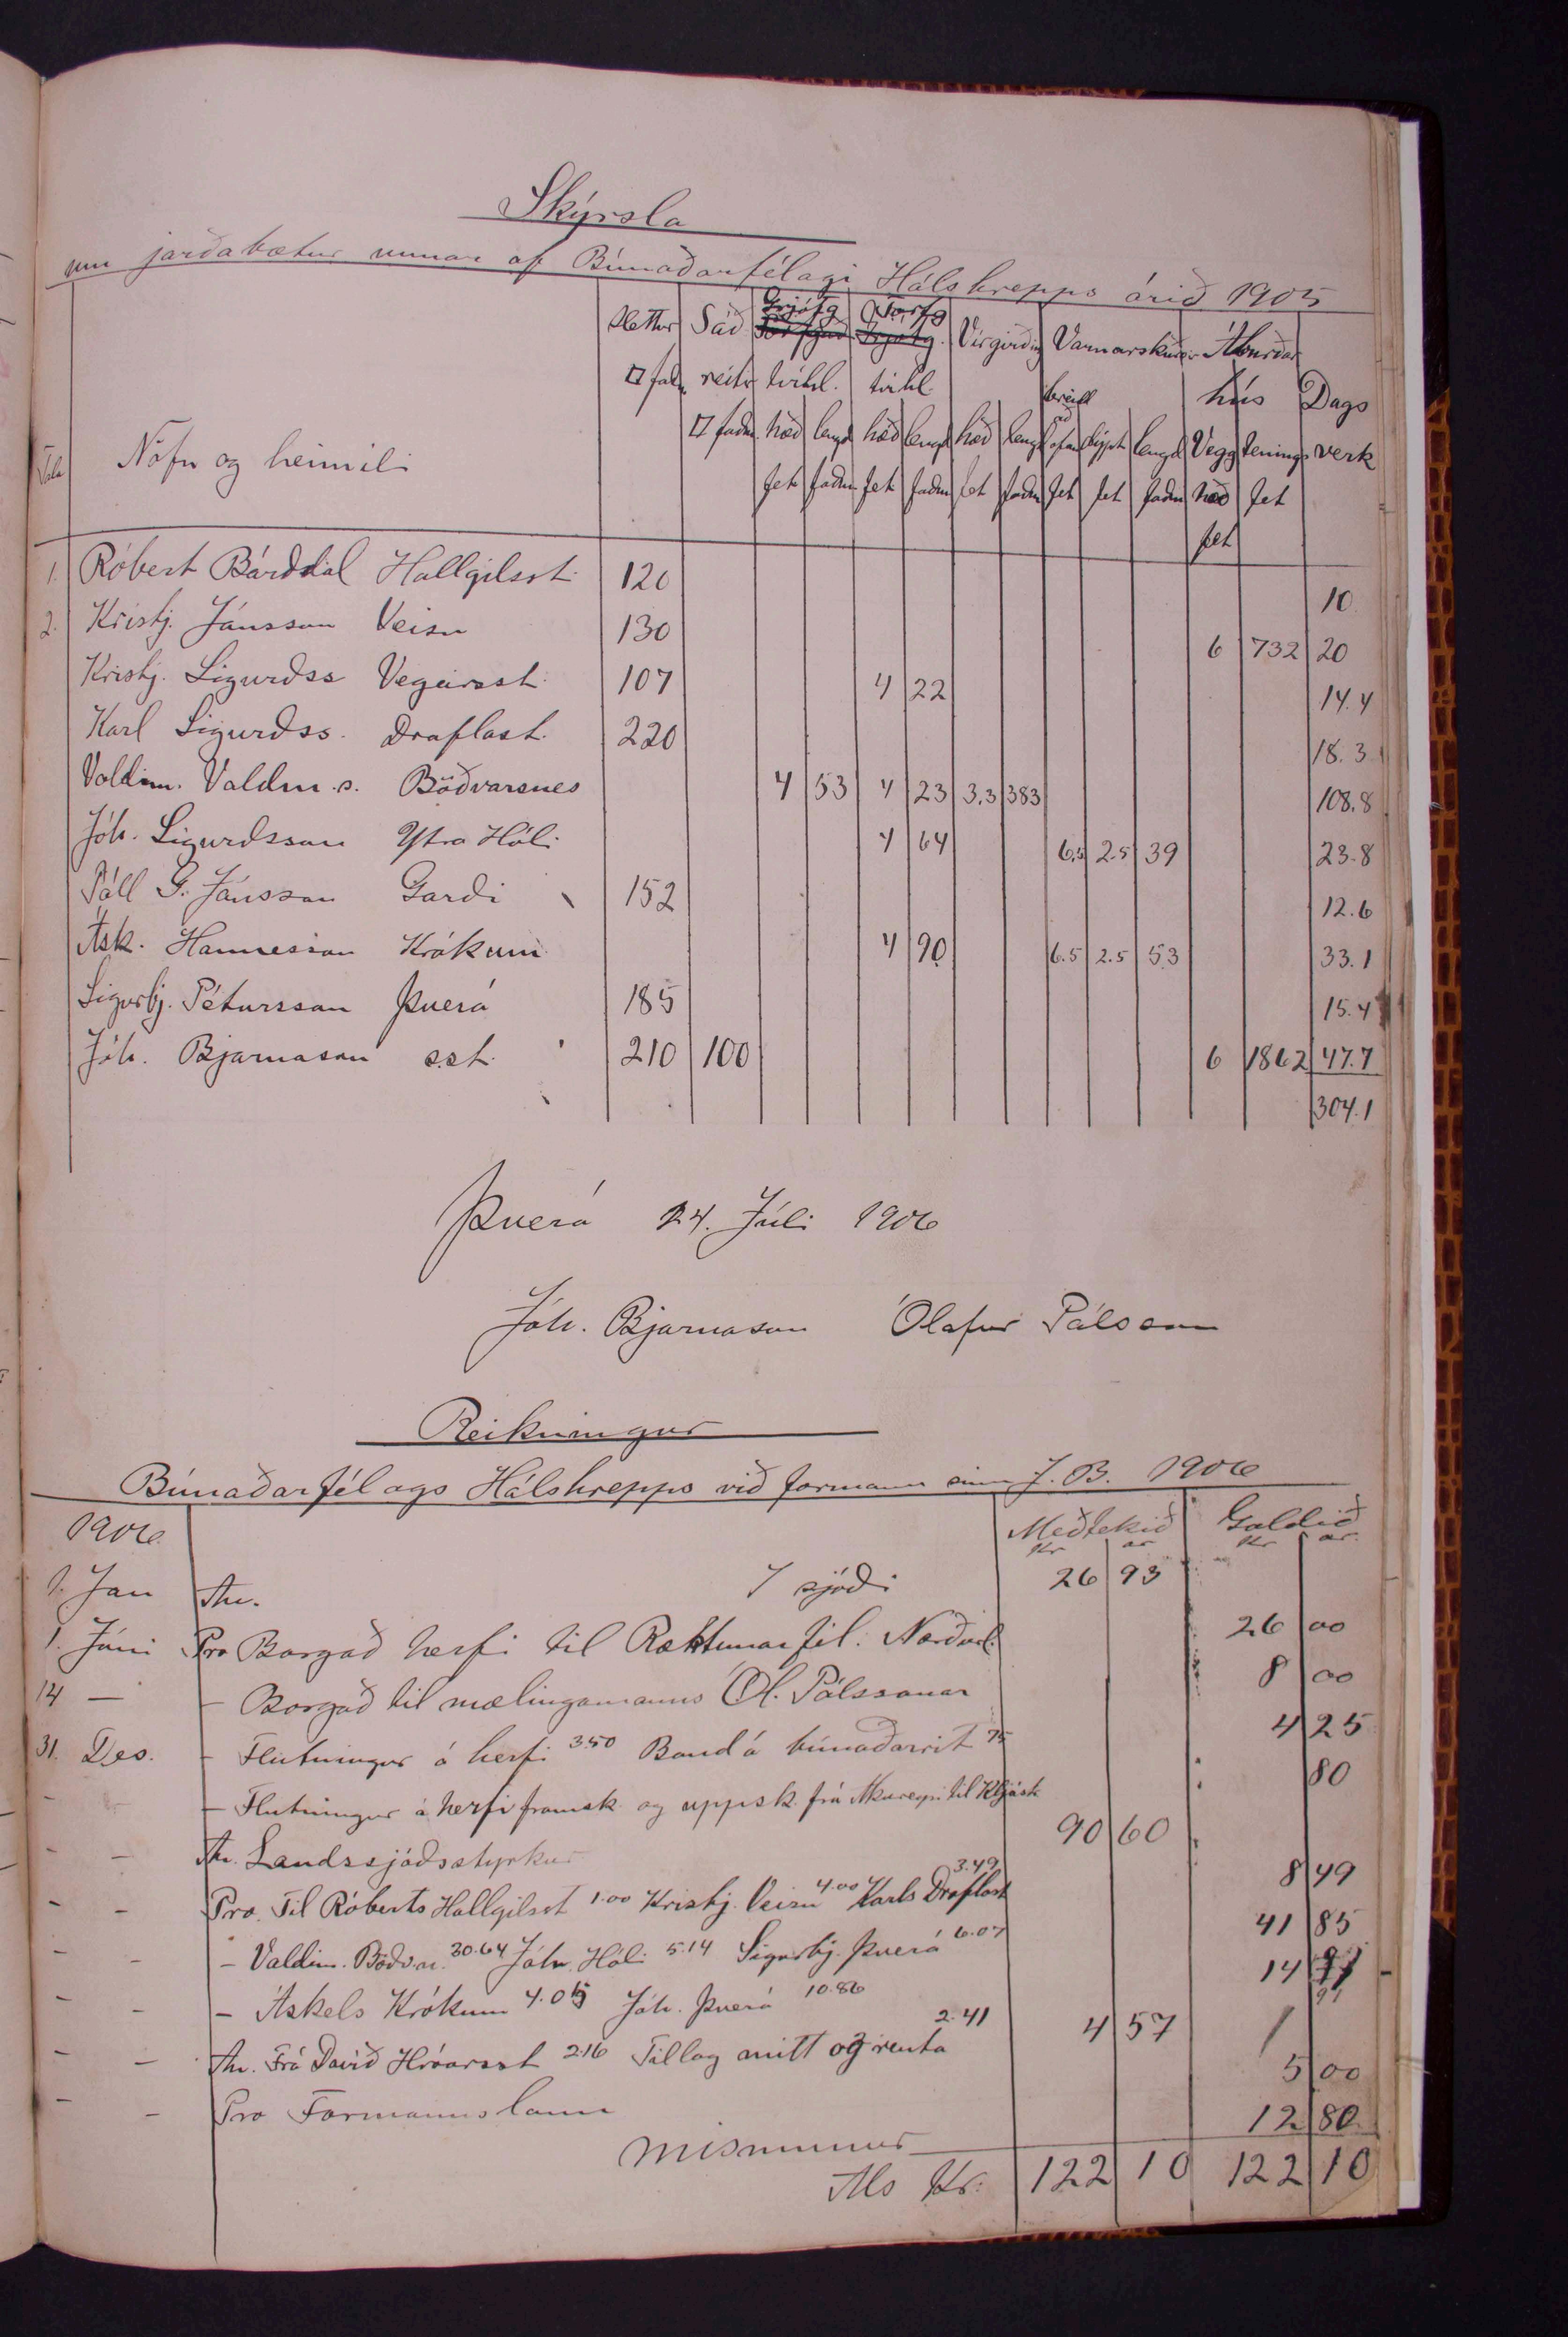 Skýrsla
um jarðabætur unnar af Búnaðarfélagi Hálshrepps árið 1905
Tala Nöfn og heimili Slettur □ faðm Sáð reitir □ faðm Grjótg tvíhl. hæð fet lengd faðm Torfg tvíhl. hæð fet lengd faðm Vírgirðing hæð fet lengd faðm Varnarskurðir breidd að ofan fet dýpt fet lengd faðm Áburðar hús Vegg hæð fet tenings fet Dags verk
1. Róbert Bárðdal Hallgilsst. 120 10
2. Kristj. Jónsson Veisu 130 6 732 20
Kristj. Sigurðss Vegeirsst. 107 4 22 14.4
Karl Sigurðss. Draflast. 220 18.3
Valdim. Valdm.s. Böðvarsnes 4 53 4 23 3.3 383 108.8
Jóh. Sigurðsson Ytra Hóli 4 64 6.5 2.5 39 23.8
Páll G. Jónsson Garði 152 12.6
Ásk. Hannesson Krókum 4 90 6.5 2.5 53 33.1
Sigurbj. Pétursson Þverá 185 15.4
Jóh. Bjarnason s.st. 210 100 6 1862 47.7
304.1
Þverá 24. Júli 1906
Jóh. Bjarnason Ólafur Pálsson
Reikningur
Búnaðarfélags Hálshrepps við formann sinn J. B. 1906
1906 Meðtekið Goldið
Kr ar Kr ar.
1. Jan An. Í sjóði 26 93
1. Júni Pro Borgað herfi til Ræktunarfél. Norðurl. 26 00
14 — - Borgað til mælingamanns Ól. Pálssonar 8 00
31. Des. - Flutningur á herfi 3.50 Band á búnaðarrit 75 4 25
- Flutningur á herfi framsk. og uppsk. frá Akureyri til Kljástr 80
- - An. Landssjóðsstyrkur 90 60
- - Pro. Til Róberts Hallgilsst 1.00 Kristj. Veisu 4.00 Karls Draflast 3.49 8 49
- - - Valdim. Böðv.n. 30.64 Jóh. Hóli 5.14 Sigurbj. Þverá 6.07 41 85
- - - Áskels Krókum 4.05 Jóh. Þverá 10.86 14 91
- - An. Frá Davíð Hróarsst 2.16 Tillag mitt og renta 2.41 4 57
- - Pro Formannslaun 5 00
mismunur 12 80
Als Kr. 122 10 122 10